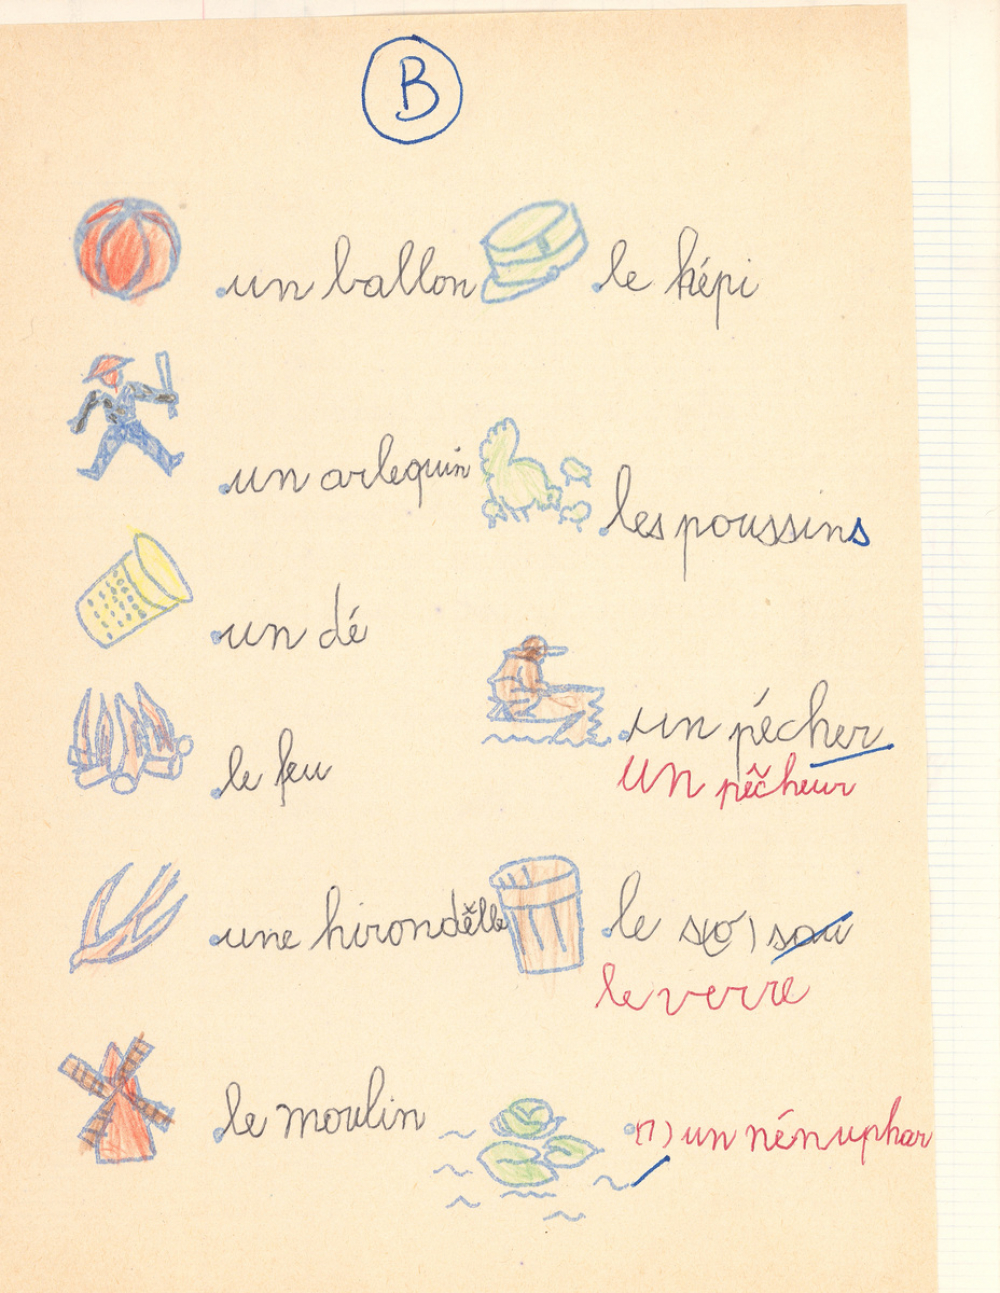 B
un ballon
le képi
un arlequin
les poussins
un dé
un pécher
un pêcheur
le feu
une hirondelle
le
le verre
le moulin
(1) un nénuphar